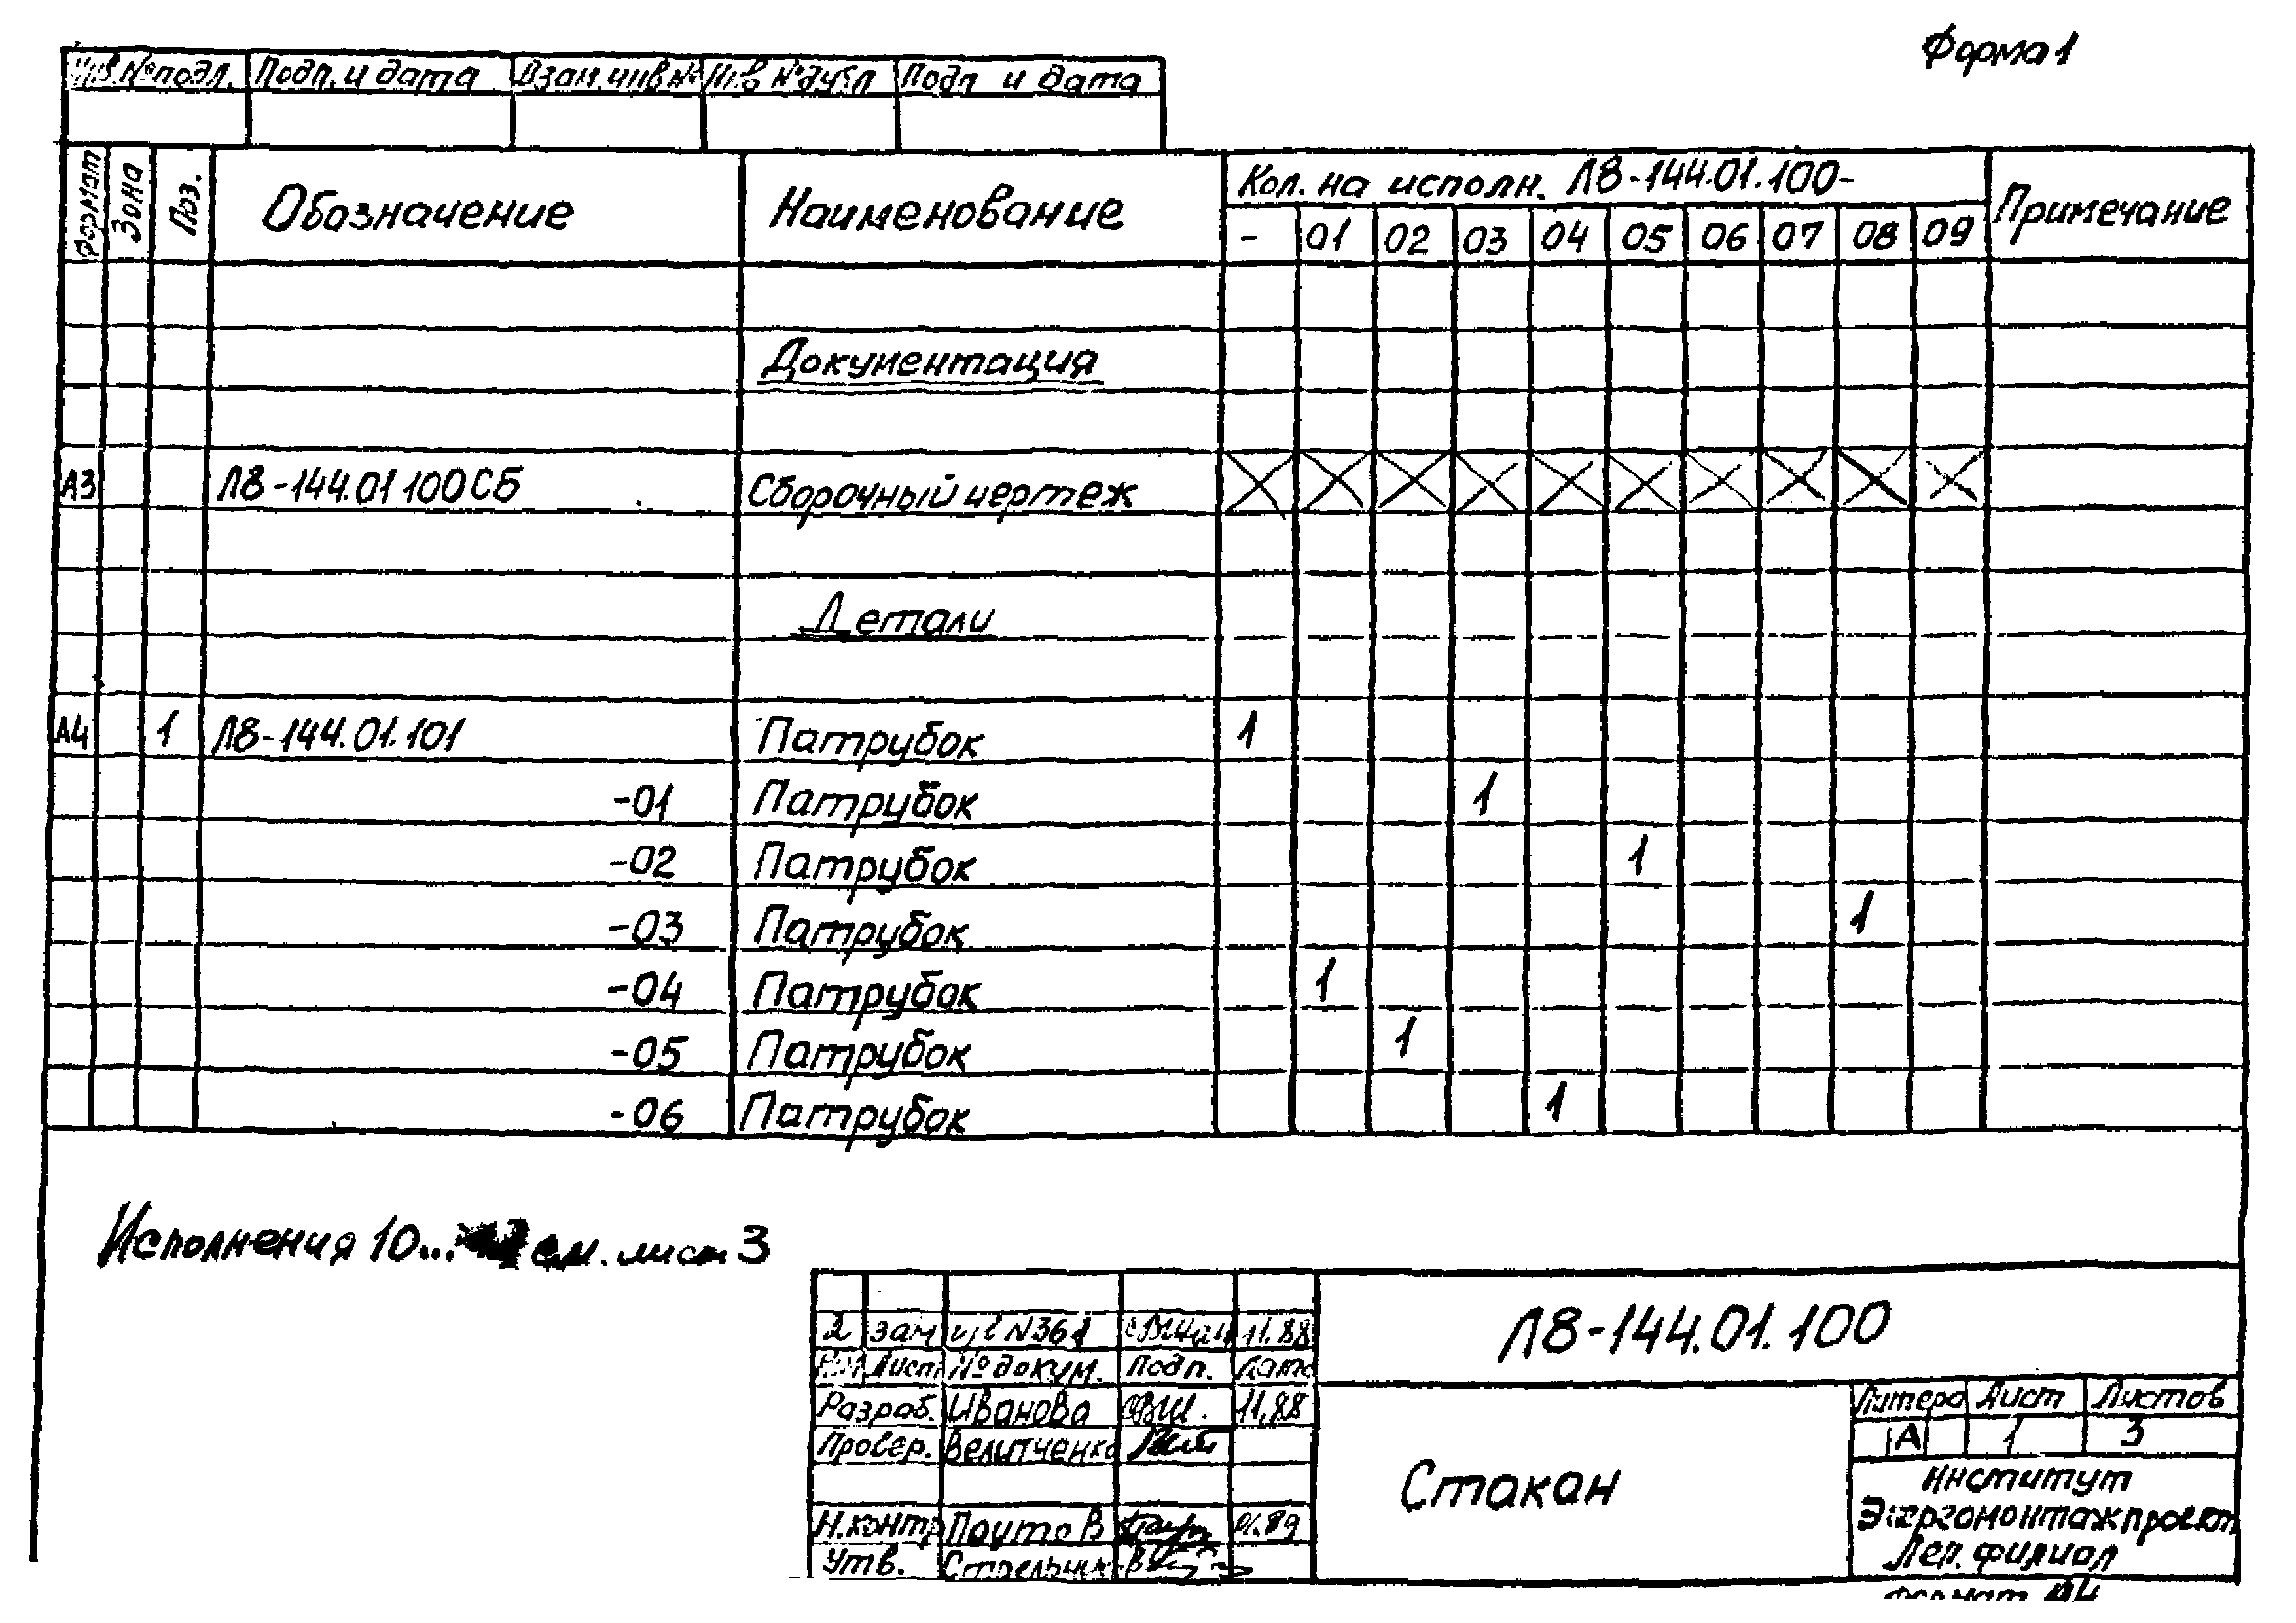 Форма 1
Инв.№подл. Подп. и дата Взам.инв№ Инв №дубл Подп и дата
Формат Зона Поз. Обозначение Наименование Кол. на исполн. Л8-144.01.100- Примечание
- 01 02 03 04 05 06 07 08 09
Документация
А3 Л8-144.01 100СБ Сборочный чертеж
Детали
А4 1 Л8-144.01.101 Патрубок 1
-01 Патрубок 1
-02 Патрубок 1
-03 Патрубок 1
-04 Патрубок 1
-05 Патрубок 1
-06 Патрубок 1
Исполнения 10... см. лист 3
Л8-144.01.100
2 зам N361 11.88
Лист №докум. Подп. Дата
Разраб. Иванова 11.88
Провер. Велитченко
Н.контр Паутов 01.89
Утв.
Стакан
Литера Лист Листов
А 1 3
Институт
Энергомонтажпроект
Лен. филиал
Формат А4